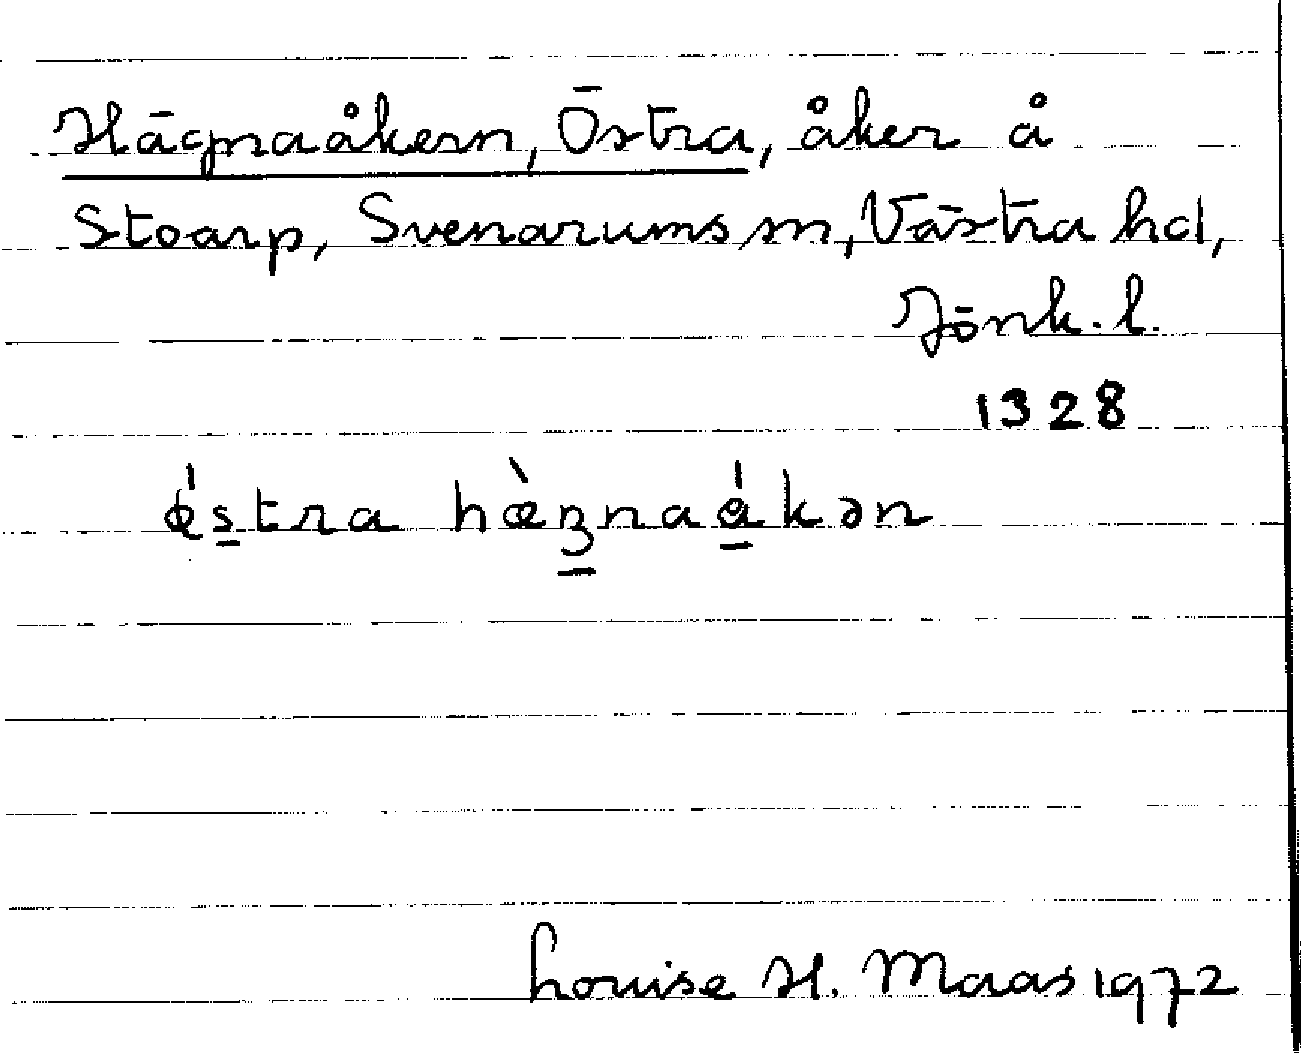 Hägnaåkern, Östra, åker å
Stoarp, Svenarums sn, Västra hd,
Jönk. l.
1328
ǿs̠tra hæ̀ʒ̠naǻ̠kən
Louise H. Maas 1972